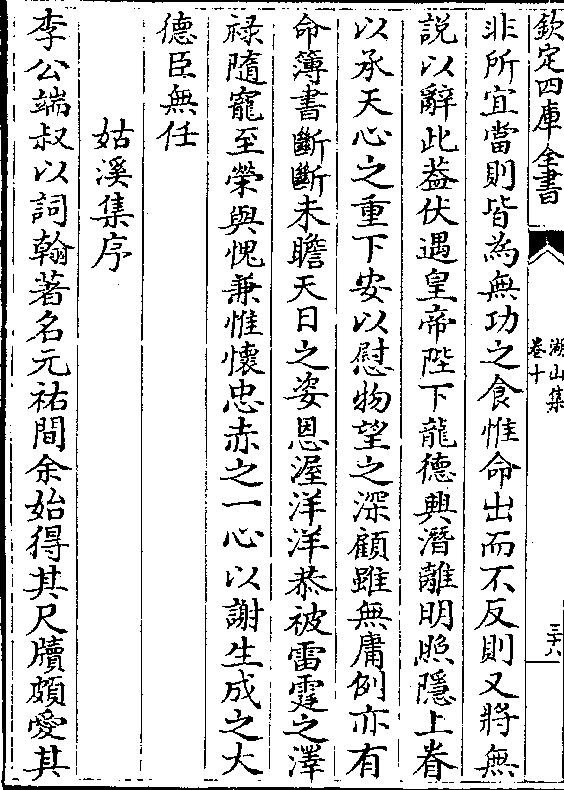 欽定四庫全書
湖山集
卷十
三十六
非所宜當則皆為無功之食惟命出而不反則又將無
說以辭此葢伏遇皇帝陛下龍德興潛離明照隱上眷
以承天心之重下安以慰物望之深顧雖無庸例亦有
命簿書斷斷未瞻天日之姿恩渥洋洋恭被雷霆之澤
祿隨寵至榮與愧兼惟懷忠赤之一心以謝生成之大
德臣無任
姑溪集序
李公端叔以詞翰著名元祐間余始得其尺牘頗愛其